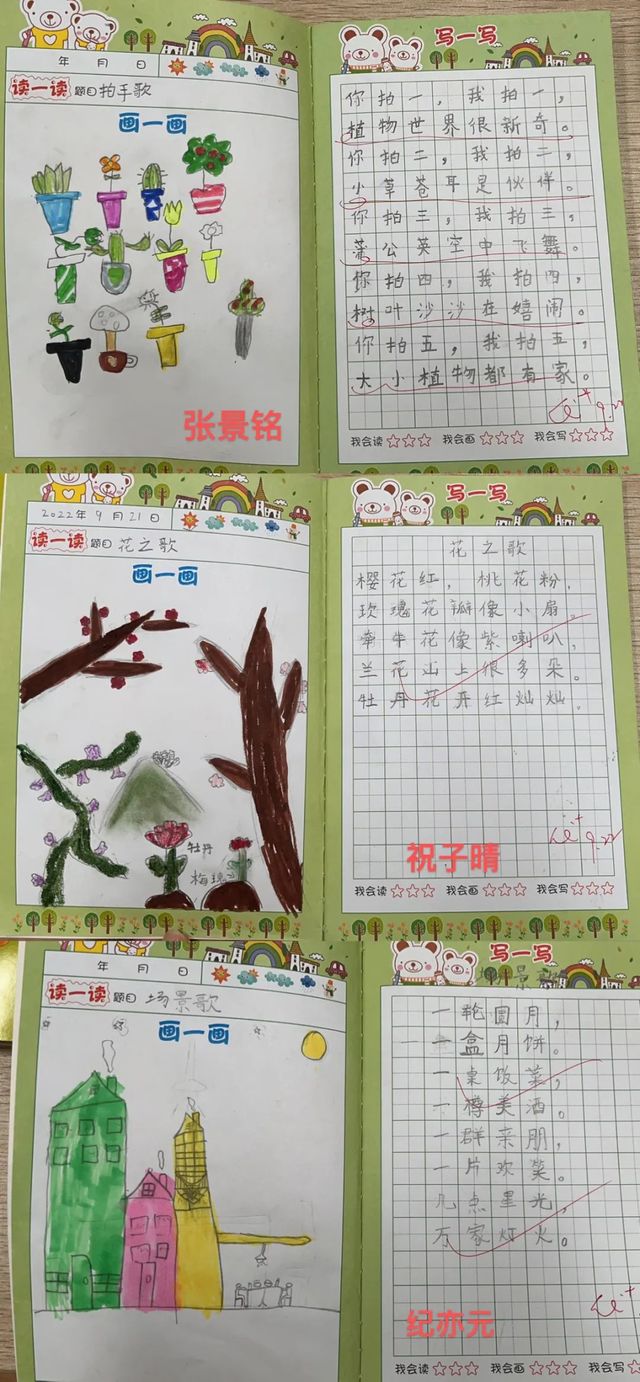 年 月 日
读一读 题目 拍手歌
画一画
张景铭
写一写
你拍一，我拍一，
植物世界很新奇。
你拍二，我拍二，
小草苍耳是伙伴。
你拍三，我拍三，
蒲公英空中飞舞。
你拍四，我拍四，
树叶沙沙在嬉闹。
你拍五，我拍五，
大小植物都有家。
我会读 我会画 我会写
2022年 9月 21日
读一读 题目 花之歌
画一画
牡丹
写一写
花之歌
樱花红，桃花粉，
玫瑰花瓣像小扇。
牵牛花像紫喇叭，
兰花山上很多朵。
牡丹花开红灿灿。
祝子晴
我会读 我会画 我会写
年 月 日
读一读 题目 场景歌
画一画
写一写
场景歌
一轮圆月，
一盒月饼。
一桌饭菜，
一樽美酒。
一群亲朋，
一片欢笑。
几点星光，
万家灯火。
纪亦元
我会读 我会画 我会写